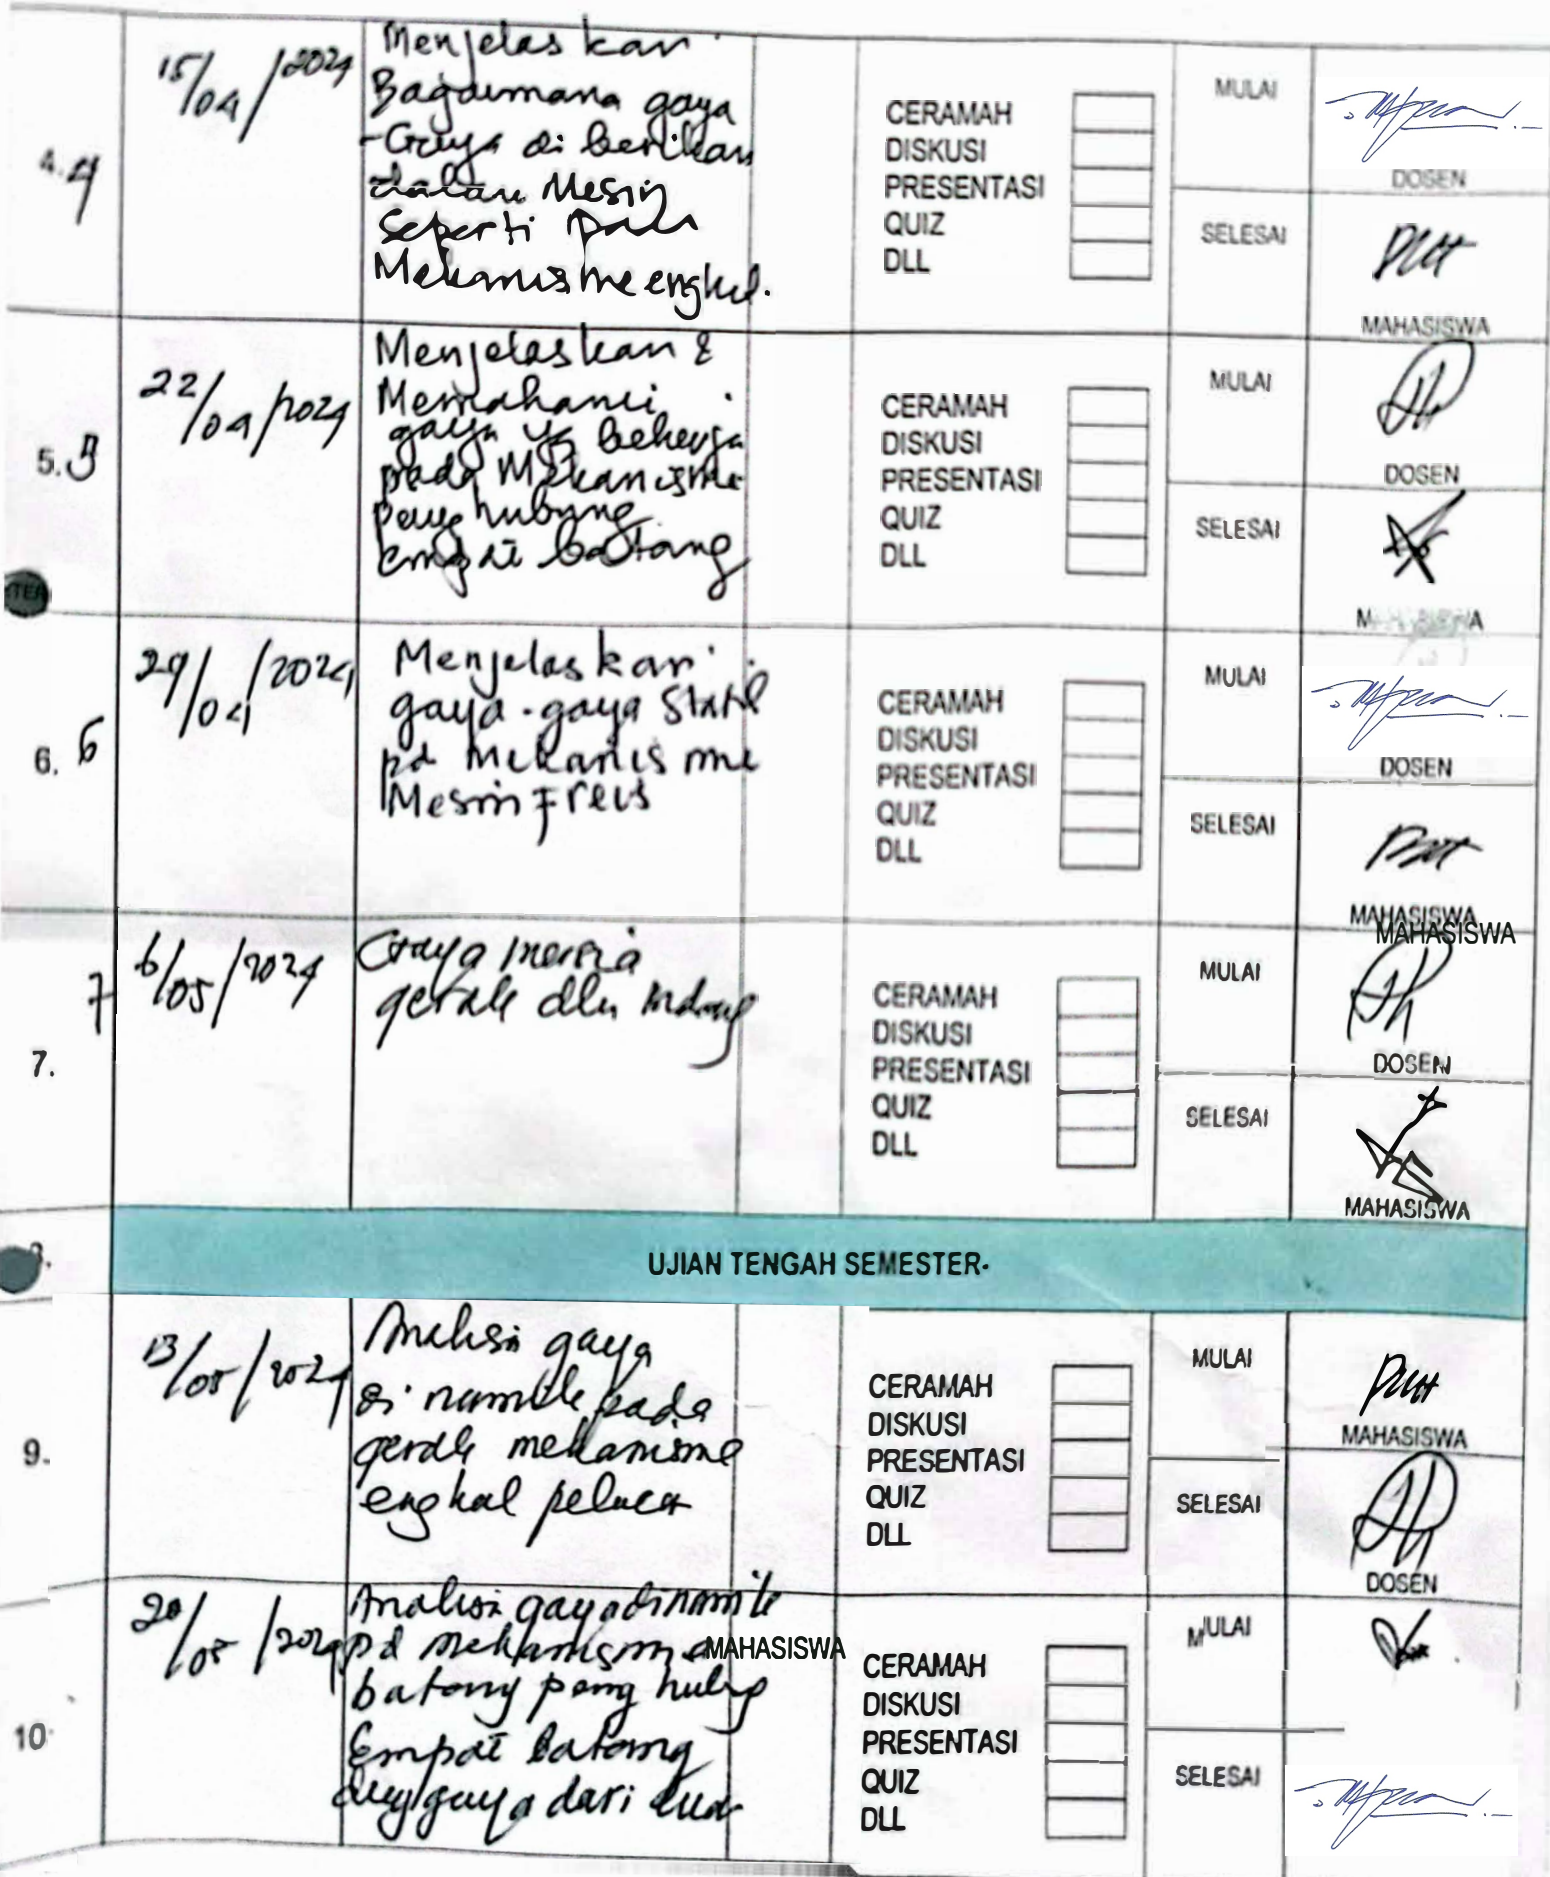 4. 4
15/04/2024
Menjelaskan
Bagaimana gaya
-Gaya di berikan
dalam Mesin
Seperti pada
Mekanisme engkol.
CERAMAH
DISKUSI
PRESENTASI
QUIZ
DLL
MULAI
DOSEN
SELESAI
MAHASISWA
5. 5
22/04/2024
Menjelaskan &
Memahami
gaya yg bekerja
pada Mekanisme
penghubung
empat batang
CERAMAH
DISKUSI
PRESENTASI
QUIZ
DLL
MULAI
DOSEN
SELESAI
MAHASISWA
6. 6
29/04/2024
Menjelaskan
gaya-gaya Statik
pd Mekanisme
Mesin Freis
CERAMAH
DISKUSI
PRESENTASI
QUIZ
DLL
MULAI
DOSEN
SELESAI
MAHASISWA
MAHASISWA
7
7.
6/05/2024
Gaya inersia
gerak dlm
CERAMAH
DISKUSI
PRESENTASI
QUIZ
DLL
MULAI
DOSEN
SELESAI
MAHASISWA
UJIAN TENGAH SEMESTER-
9.
13/05/2024
Analisa gaya
dinamik pada
gerak mekanisme
engkol peluncur
CERAMAH
DISKUSI
PRESENTASI
QUIZ
DLL
MULAI
MAHASISWA
SELESAI
DOSEN
10
20/05/2024
Analisa gaya dinamik
pd mekanisme
MAHASISWA
batang penghubung
Empat batang
dng gaya dari luar
CERAMAH
DISKUSI
PRESENTASI
QUIZ
DLL
MULAI
SELESAI